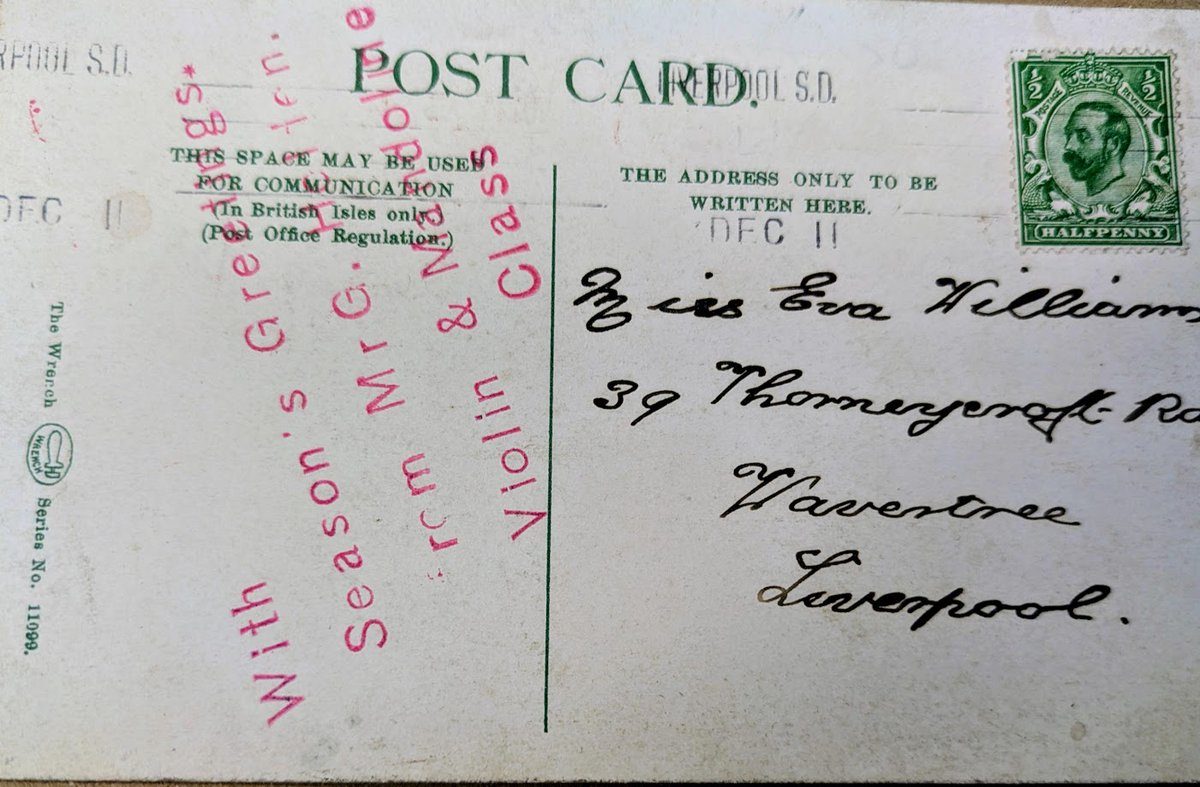 RPOOL S.D.
DEC 11
POST CARD.
LIVERPOOL S.D.
DEC 11
THIS SPACE MAY BE USED
FOR COMMUNICATION
(In British Isles only.)
(Post Office Regulation.)
THE ADDRESS ONLY TO BE
WRITTEN HERE.
½ ½
POSTAGE REVENUE
HALFPENNY
With
Season's Greetings*
from Mr G.
Violin & Mandoline
Class
Miss Eva Williams
39 Thorneycroft Ro
Wavertree
Liverpool.
The Wrench
WRENCH
Series No. 11099.